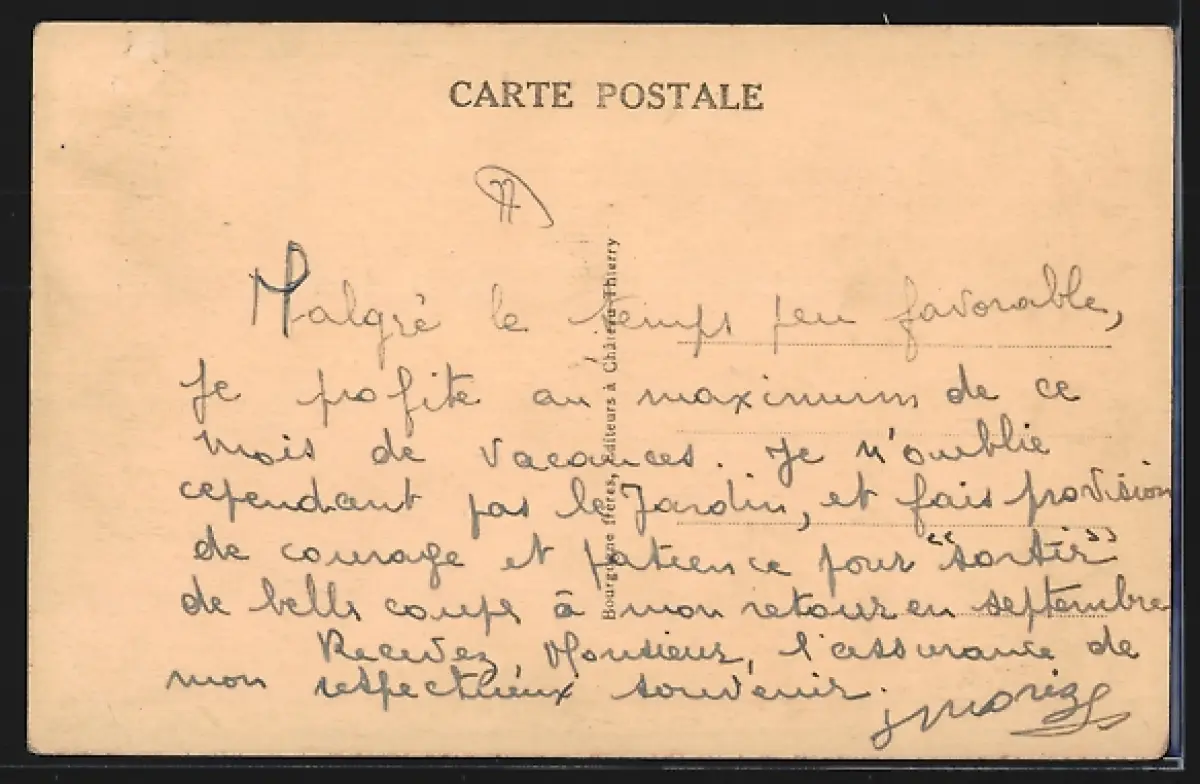 CARTE POSTALE
77
Bourgogne frères, éditeurs à Château-Thierry
Malgré le temps peu favorable,
Je profite au maximum de ce
mois de vacances. Je n'oublie
cependant pas le Jardin, et fais provision
de courage et patience pour "sortir"
de bells coups à mon retour en septembre
Recevez, Monsieur, l'assurance de
mon respectueux souvenir.